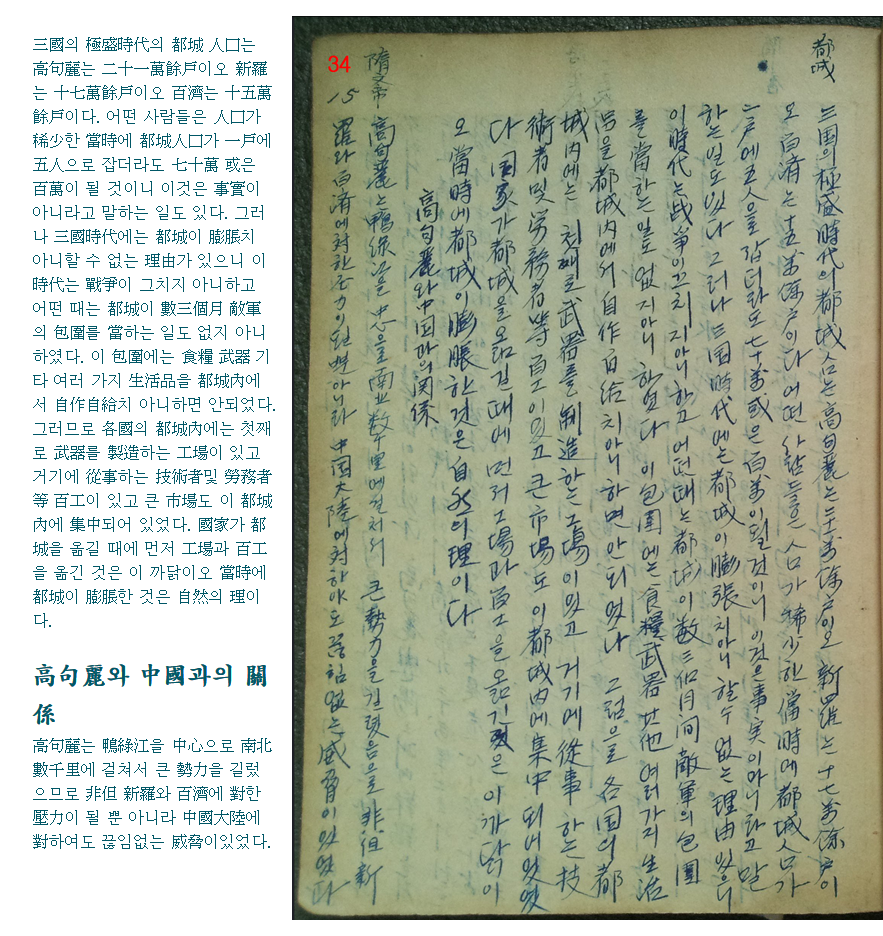 三國의 極盛時代의 都城 人口는
高句麗는 二十一萬餘戶이오 新羅
는 十七萬餘戶이오 百濟는 十五萬
餘戶이다. 어떤 사람들은 人口가
稀少한 當時에 都城人口가 一戶에
五人으로 잡더라도 七十萬 或은
百萬이 될 것이니 이것은 事實이
아니라고 말하는 일도 있다. 그러
나 三國時代에는 都城이 膨脹치
아니할 수 없는 理由가 있으니 이
時代는 戰爭이 그치지 아니하고
어떤 때는 都城이 數三個月 敵軍
의 包圍를 當하는 일도 없지 아니
하였다. 이 包圍에는 食糧 武器 기
타 여러 가지 生活品을 都城內에
서 自作自給치 아니하면 안되었다.
그러므로 各國의 都城內에는 첫째
로 武器를 製造하는 工場이 있고
거기에 從事하는 技術者및 勞務者
等 百工이 있고 큰 市場도 이 都城
內에 集中되어 있었다. 國家가 都
城을 옮길 때에 먼저 工場과 百工
을 옮긴 것은 이 까닭이오 當時에
都城이 膨脹한 것은 自然의 理이
다.
高句麗와 中國과의 關
係
高句麗는 鴨綠江을 中心으로 南北
數千里에 걸쳐서 큰 勢力을 길렀
으므로 非但 新羅와 百濟에 對한
壓力이 될 뿐 아니라 中國大陸에
對하여도 끊임없는 威脅이있었다.
34
都城
三国의 極盛時代의 都城 人口는 高句麗는 二十一萬餘戶이오 新羅는 十七萬餘戶이
오 百済는 十五萬餘戶이다 어떤 사람들은 人口가 稀少한 當時에 都城人口가
一戶에 五人을 잡더라도 七十萬 或은 百萬이 될 것이니 이것은 事実이 아니라고 말
하는 일도 있다 그러나 三国時代에는 都城이 膨張치 아니할 수 없는 理由 있으니
이 時代는 战爭이 끄치지 아니하고 어떤 때는 都城이 数三個月间 敵軍의 包圍
를 當하는 일도 없지 아니 하였다 이 包圍에는 食糧 武器 其他 여러가지 生活
品을 都城内에서 自作自給치 아니하면 안되었다 그럼으로 各国의 都
城内에는 첫째로 武器를 制造하는 工場이 있고 거기에 從事하는 技
術者 및 労務者等 百工이 있고 큰 市場도 이 都城内에 集中되어 있었
다 国家가 都城을 옮길 때에 먼저 工場과 百工을 옮긴 은 이 까닭이
오 當時에 都城이 膨脹한 것은 自然의 理이다
高句麗와 中国과의 関係
隋文帝
15
高句麗는 鴨綠江을 中心을로 南北 数千里에 걸처서 큰 勢力을 길렀음으로 非但 新
羅와 百済에 対한 压力이 될뿐 아니라 中国大陸에 対하야도 끊힘없는 威脅이 있었다